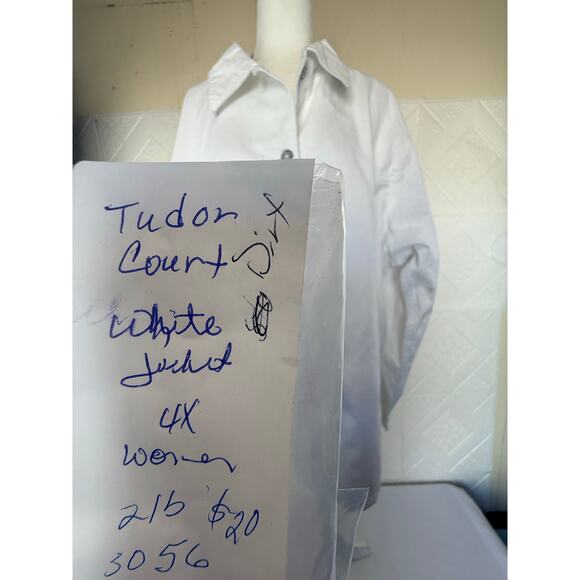 Tudor
Court
White
Jacket
4X
women
2lb $20
3056